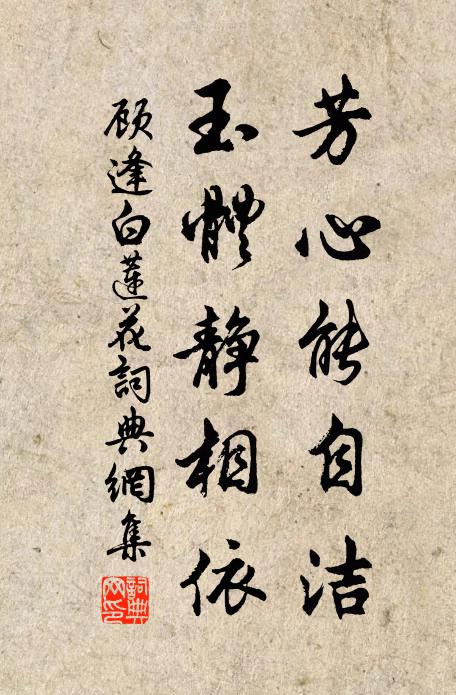 芳心能自洁
玉體静相依
顾逢白蓮花詞典網集
詞典网印